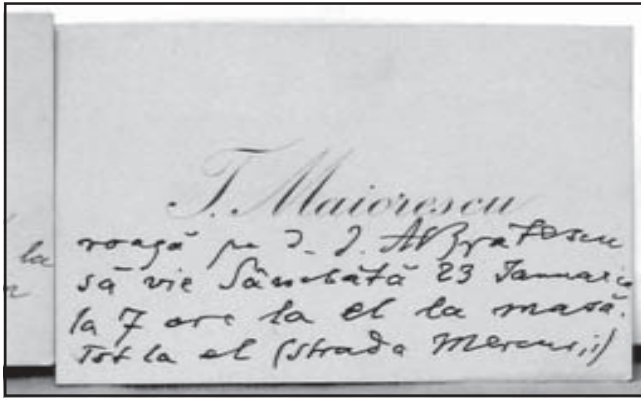 la
T. Maiorescu
roagă pe D. I. Al Brătescu
să vie Sâmbătă 23 Ianuarie
la 7 ore la el la masă.
Tot la el (strada Mercur, ii)